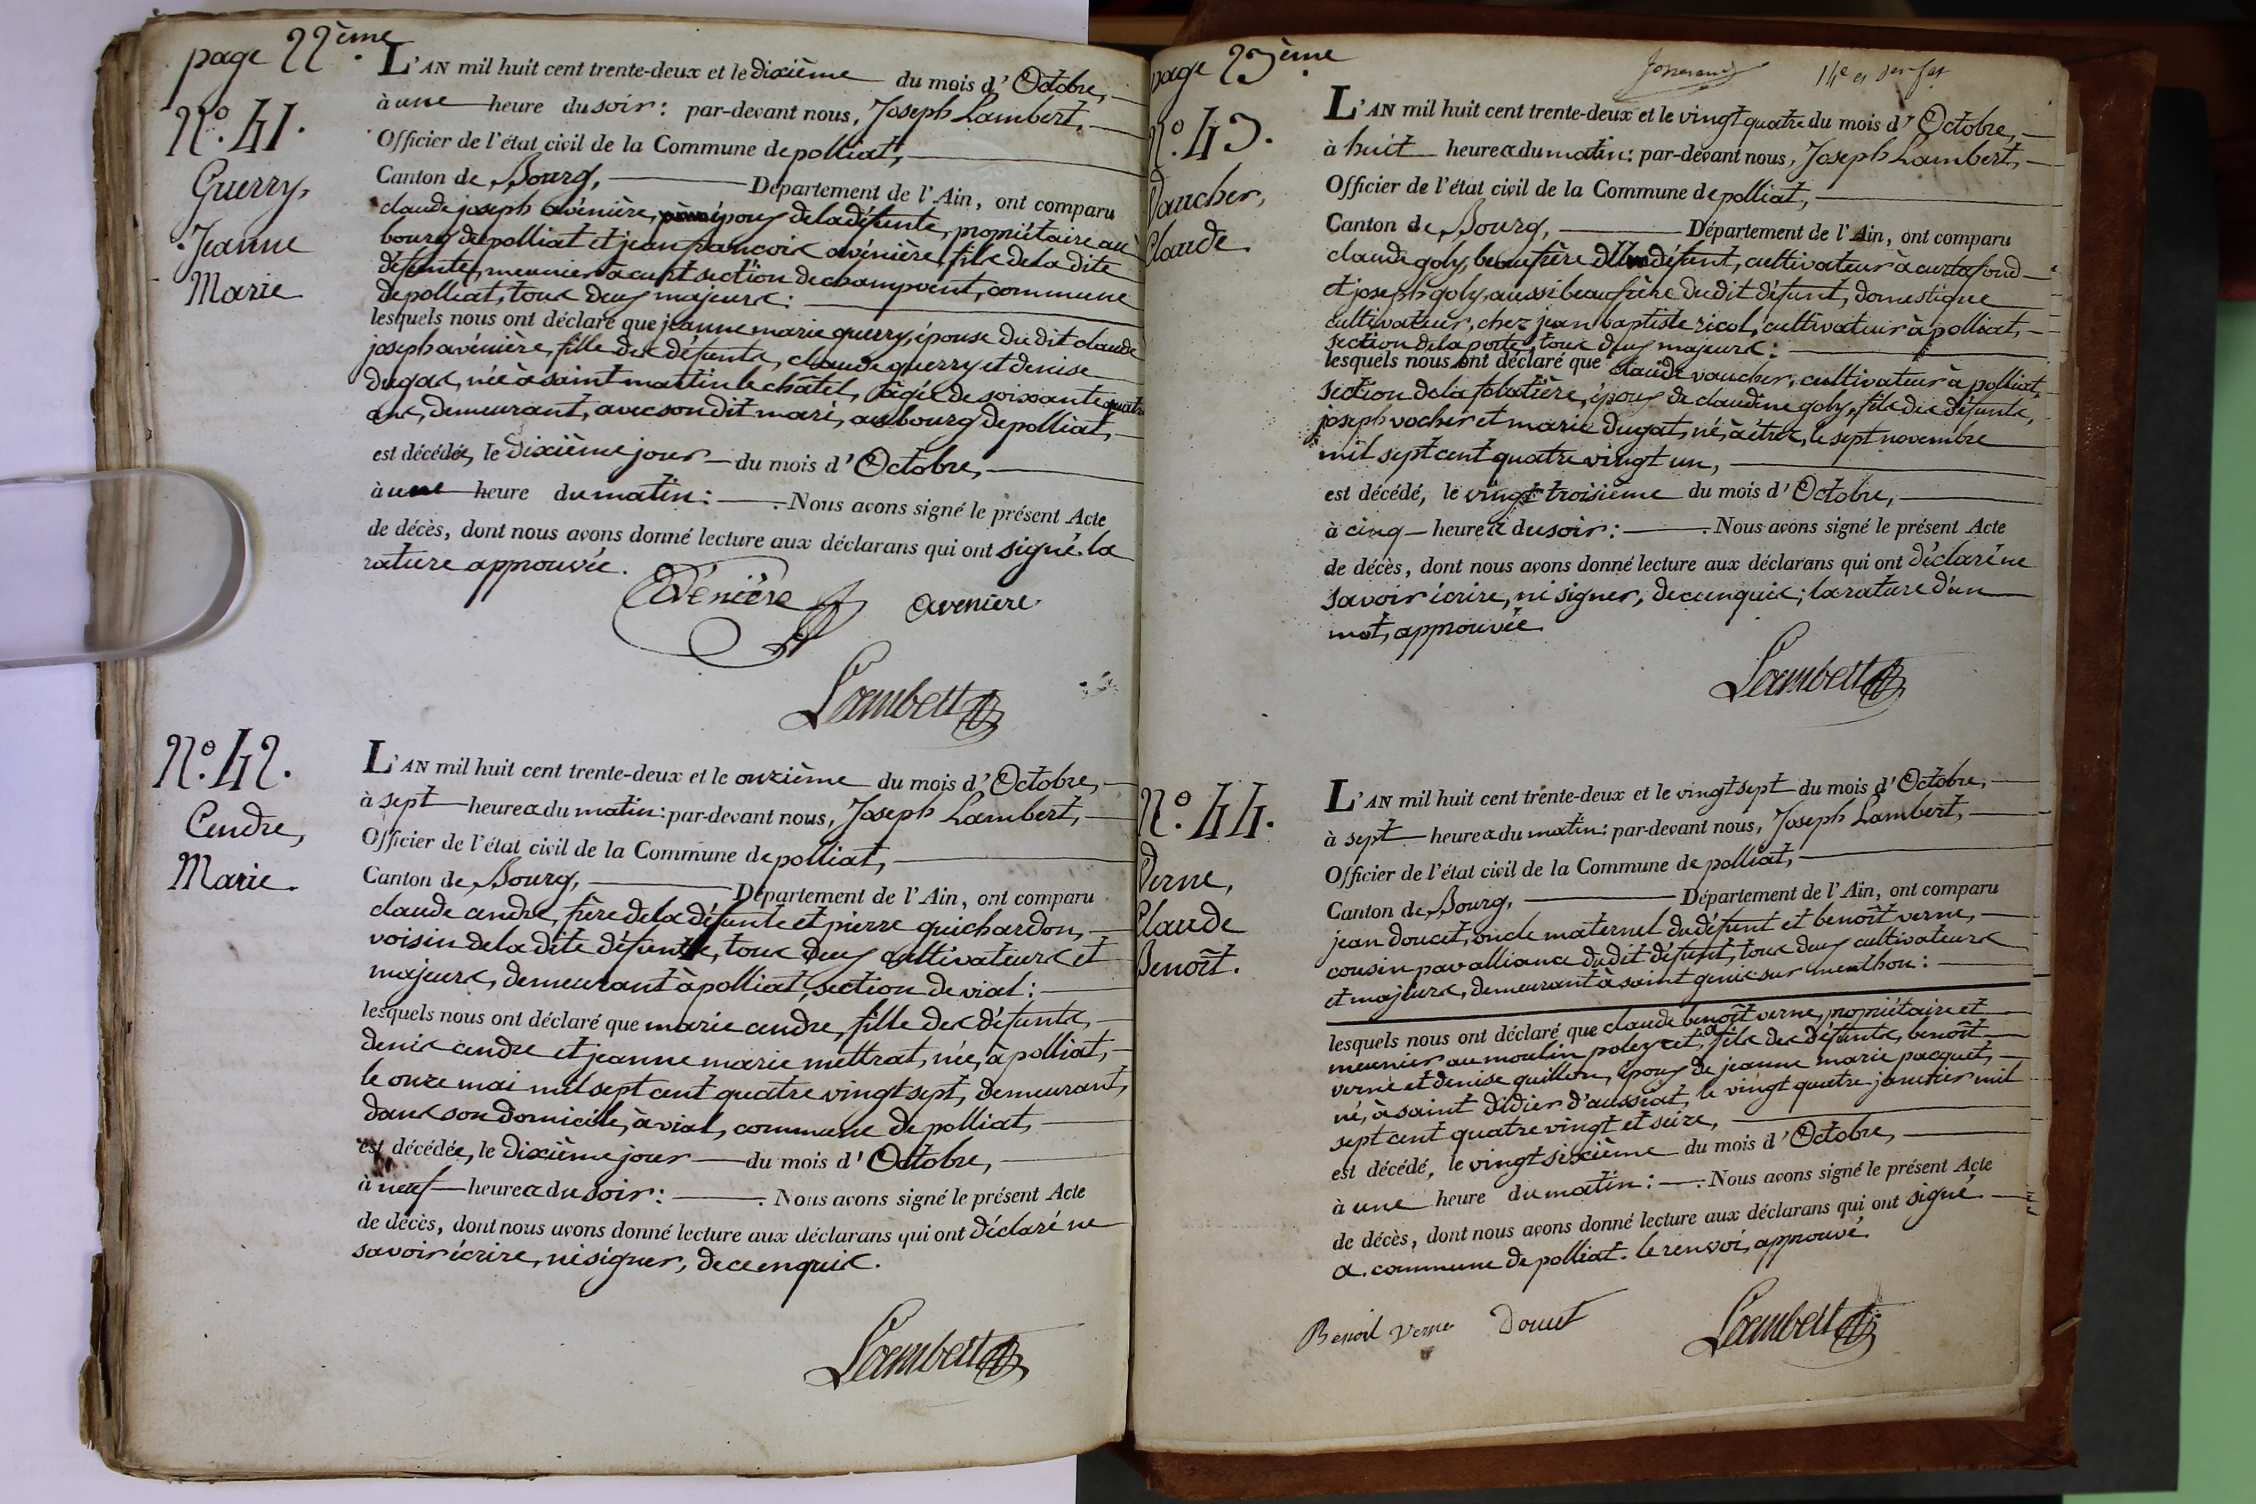 page 22ème
N.º 41.
Guerry,
Jeanne
Marie
L'AN mil huit cent trente-deux et le dixième du mois d'Octobre,
à une heure du soir : par-devant nous, Joseph Lambert,
Officier de l'état civil de la Commune de polliat,
Canton de Bourg, Département de l'Ain, ont comparu
claude joseph avénière, époux de la défunte, propriétaire au
bourg de polliat et jean françois avénière, fils de la dite
défunte, meunier à curtet section de champvent, commune
de polliat, tous deux majeurs :
lesquels nous ont déclaré que jeanne marie guerry, épouse du dit claude
joseph avénière, fille des défunts, claude guerry et denise
dugas, née à saint martin le châtel, âgée de soixante quatre
ans, demeurant, avec son dit mari, au bourg de polliat,
est décédée, le dixième jour du mois d'Octobre,
à une heure du matin : . Nous avons signé le présent Acte
de décès, dont nous avons donné lecture aux déclarans qui ont signé. la
rature approuvée.
Avénière aveniere
Lambert
N.º 42.
Cendre,
Marie.
L'AN mil huit cent trente-deux et le onzième du mois d'Octobre,
à sept heures du matin : par-devant nous, Joseph Lambert,
Officier de l'état civil de la Commune de polliat,
Canton de Bourg, Département de l'Ain, ont comparu
claude cendre, frère de la défunte et pierre guichardon,
voisin de la dite défunte, tous deux cultivateurs et
majeurs, demeurant à polliat, section de vial :
lesquels nous ont déclaré que marie cendre, fille des défunts,
denis cendre et jeanne marie mettrat, née, à polliat,
le onze mai mil sept cent quatre vingt sept, demeurant,
dans son domicile, à vial, commune de polliat,
est décédée, le dixième jour du mois d'Octobre,
à neuf heures du soir : . Nous avons signé le présent Acte
de décès, dont nous avons donné lecture aux déclarans qui ont déclaré ne
savoir écrire, ni signer, de ce enquis.
Lambert
page 23ème
N.º 43.
Vaucher,
Claude.
L'AN mil huit cent trente-deux et le vingt quatre du mois d'Octobre,
à huit heures du matin : par-devant nous, Joseph Lambert,
Officier de l'état civil de la Commune de polliat,
Canton de Bourg, Département de l'Ain, ont comparu
claude goly, beaufrère du défunt, cultivateur à curtafond
et joseph goly, aussi beaufrère du dit défunt, domestique
cultivateur, chez jean baptiste ricol, cultivateur à polliat,
section de la poste, tous deux majeurs :
lesquels nous ont déclaré que claude vaucher, cultivateur à polliat,
section de la tobatière, époux de claudine goly, fils des défunts,
joseph vocher et marie dugat, né, à étrez, le sept novembre
mil sept cent quatre vingt un,
est décédé, le vingt troisième du mois d'Octobre,
à cinq heures du soir : . Nous avons signé le présent Acte
de décès, dont nous avons donné lecture aux déclarans qui ont déclaré ne
savoir écrire, ni signer, de ce enquis ; la rature d'un
mot, approuvée.
Lambert
N.º 44.
Verne,
Claude
Benoît.
L'AN mil huit cent trente-deux et le vingt sept du mois d'Octobre,
à sept heures du matin : par-devant nous, Joseph Lambert,
Officier de l'état civil de la Commune de polliat,
Canton de Bourg, Département de l'Ain, ont comparu
jean doucet, oncle maternel du défunt et benoît verne,
cousin par alliance du dit défunt, tous deux cultivateurs
et majeurs, demeurant à saint genis sur menthon :
lesquels nous ont déclaré que claude benoît verne, propriétaire et
meunier au moulin poleyzet, a fils des défunts, benoît
verne et denise guillon, époux de jeanne marie pacquet,
né, à saint didier d'aussiat, le vingt quatre janvier mil
sept cent quatre vingt et seize,
est décédé, le vingt sixième du mois d'Octobre,
à une heure du matin : . Nous avons signé le présent Acte
de décès, dont nous avons donné lecture aux déclarans qui ont signé.
a. commune de polliat. le renvoi, approuvé.
Benoit Verne Doucet
Lambert